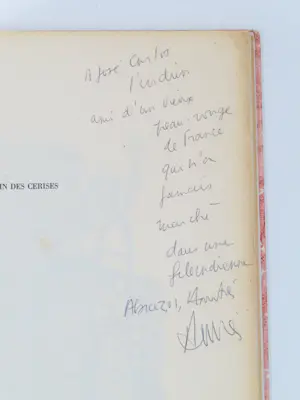 A José Carlos
l'indien
ami d'un vieux
peau-rouge
de France
qui n'a
jamais
marché
dans une
IN DES CERISES